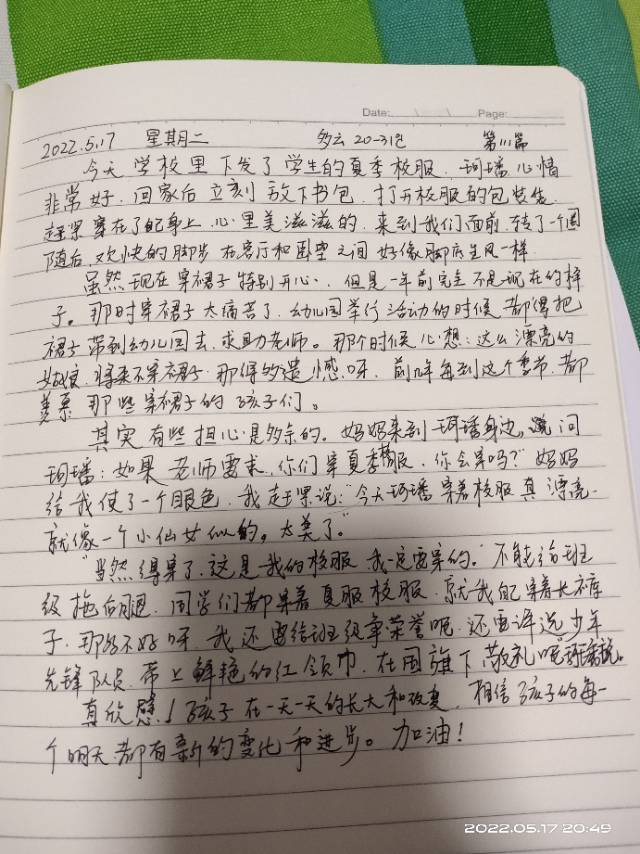 Date: Page:
2022.5.17 星期二 多云 20-31℃ 第111篇
今天学校里下发了学生的夏季校服,珂璠心情
非常好,回家后立刻放下书包,打开校服的包装袋,
赶紧穿在了自己身上,心里美滋滋的,来到我们面前,转了一个圈
随后,欢快的脚步在客厅和卧室之间好像脚底生风一样.
虽然现在穿裙子特别开心,但是一年前完全不是现在的样
子。那时穿裙子太痛苦了,幼儿园举行活动的时候都偶把
裙子带到幼儿园去,求助老师。那个时候心想:这么漂亮的
姑娘,将来不穿裙子,那得多遗憾呀,前几年每到这个季节,都
羡慕那些穿裙子的孩子们。
其实有些担心是多余的。妈妈来到珂璠身边,问
珂璠:如果老师要求,你们穿夏季校服,你会穿吗?"妈妈
给我使了一个眼色,我赶紧说:"今天珂璠穿着校服真漂亮.
就像一个小仙女似的。太美了。"
"当然得穿了,这是我的校服,我一定要穿的。"不能给班
级拖后腿,同学们都穿着夏服校服,就我自己穿着长裤
子,那多不好呀,我还要给班级争荣誉呢,还要评选少年
先锋队员,带上鲜艳的红领巾,在国旗下敬礼呢珂璠说。
真欣慰!孩子在一天一天的长大和改变,相信孩子的每一
个明天都有新的变化和进步。加油!
2022.05.17 20:49